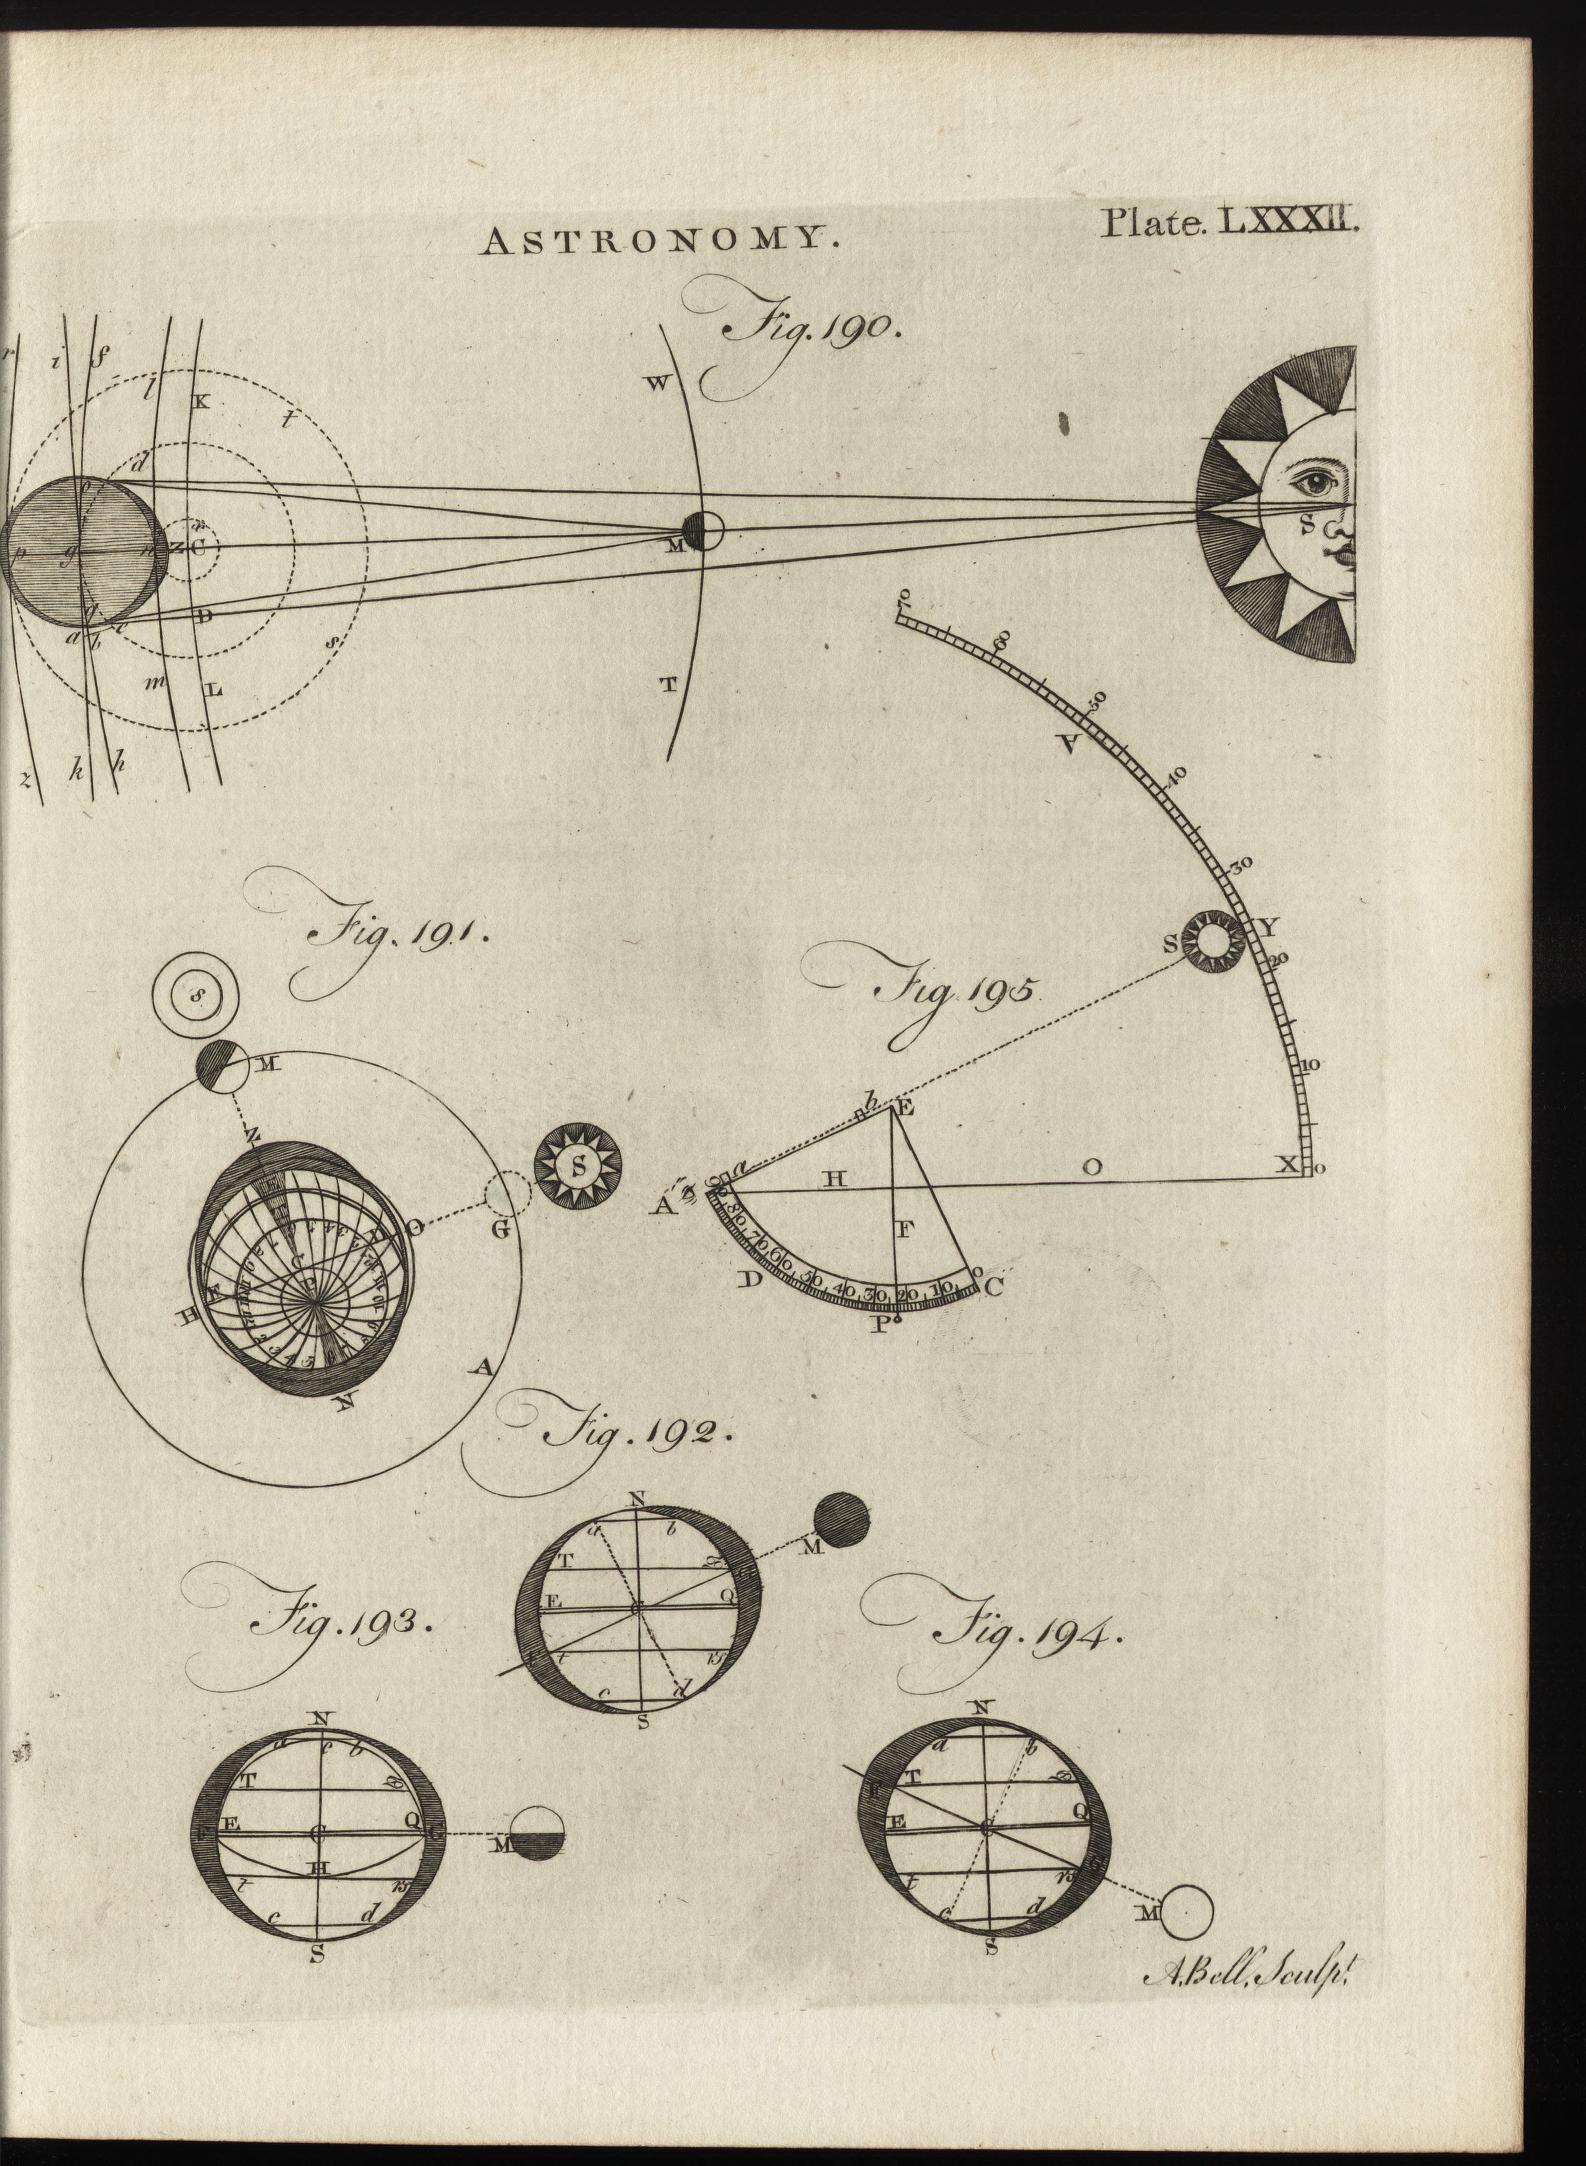 ASTRONOMY.
Plate. LXXXII.
Fig. 190.
r
i
f
l
K
t
W
d
e
x
S
p
g
n
Z
C
M
D
a
b
c
s
m
L
T
z
k
h
70
60
50
A
40
30
Fig. 191.
S
Y
20
s
Fig. 195.
M
10
h
E
Z
S
a
H
O
X
0
A
G
O
F
90
80
70
60
50
40
30
20
10
0
D
C
P
C
P
H
E
A
N
Fig. 192.
N
M
a
b
T
E
C
Q
t
c
d
S
Fig. 193.
Fig. 194.
N
a
e
b
T
F
E
C
Q
G
M
H
t
c
d
S
N
a
b
F
T
E
C
Q
G
t
c
d
M
S
A. Bell, Sculpt.